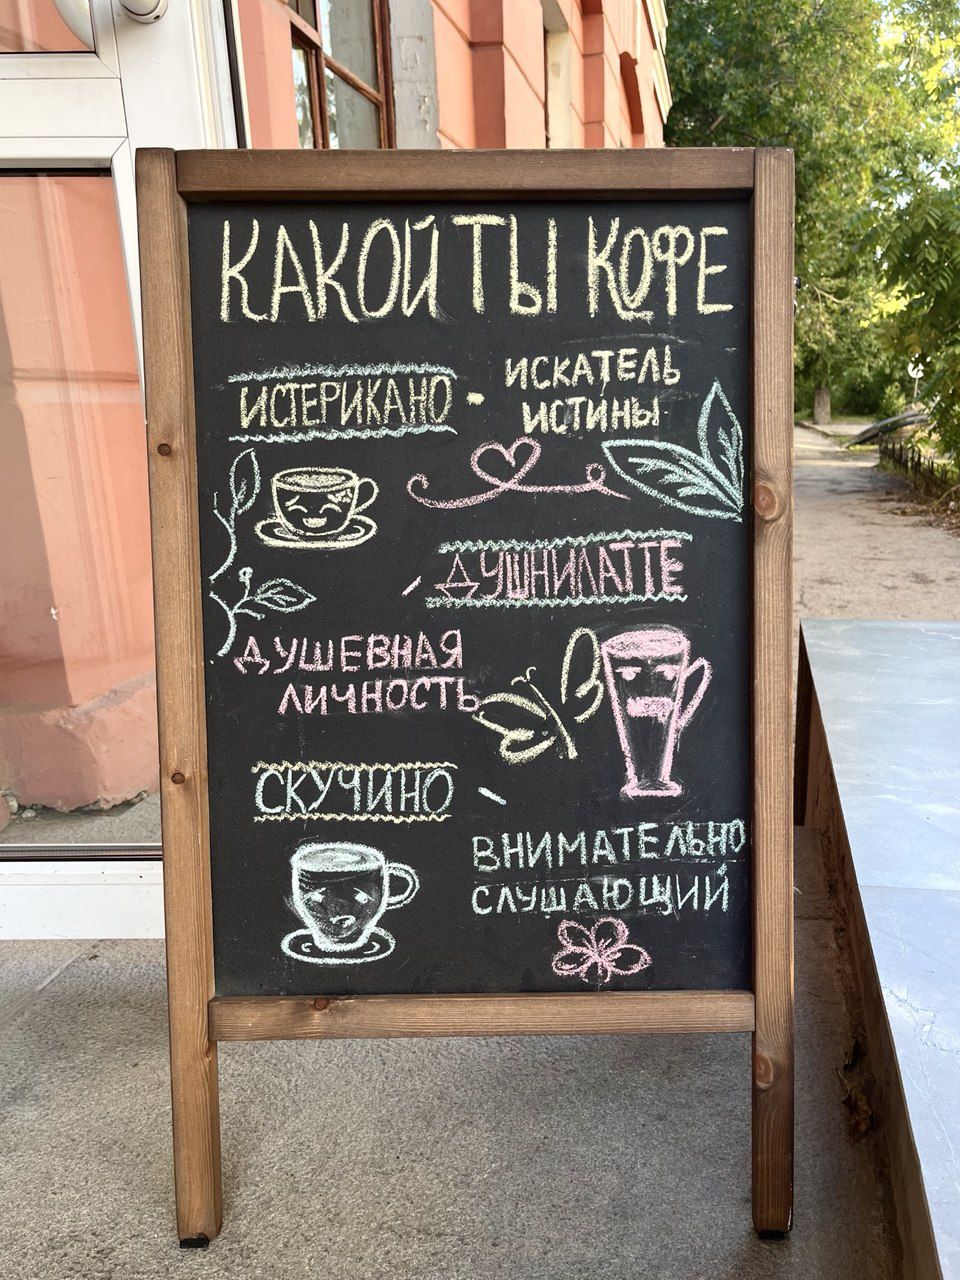 КАКОЙ ТЫ КОФЕ
ИСТЕРИКАНО -
ИСКАТЕЛЬ
ИСТИНЫ
ДУШНИЛАТТЕ
ДУШЕВНАЯ
ЛИЧНОСТЬ
СКУЧИНО -
ВНИМАТЕЛЬНО
СЛУШАЮЩИЙ